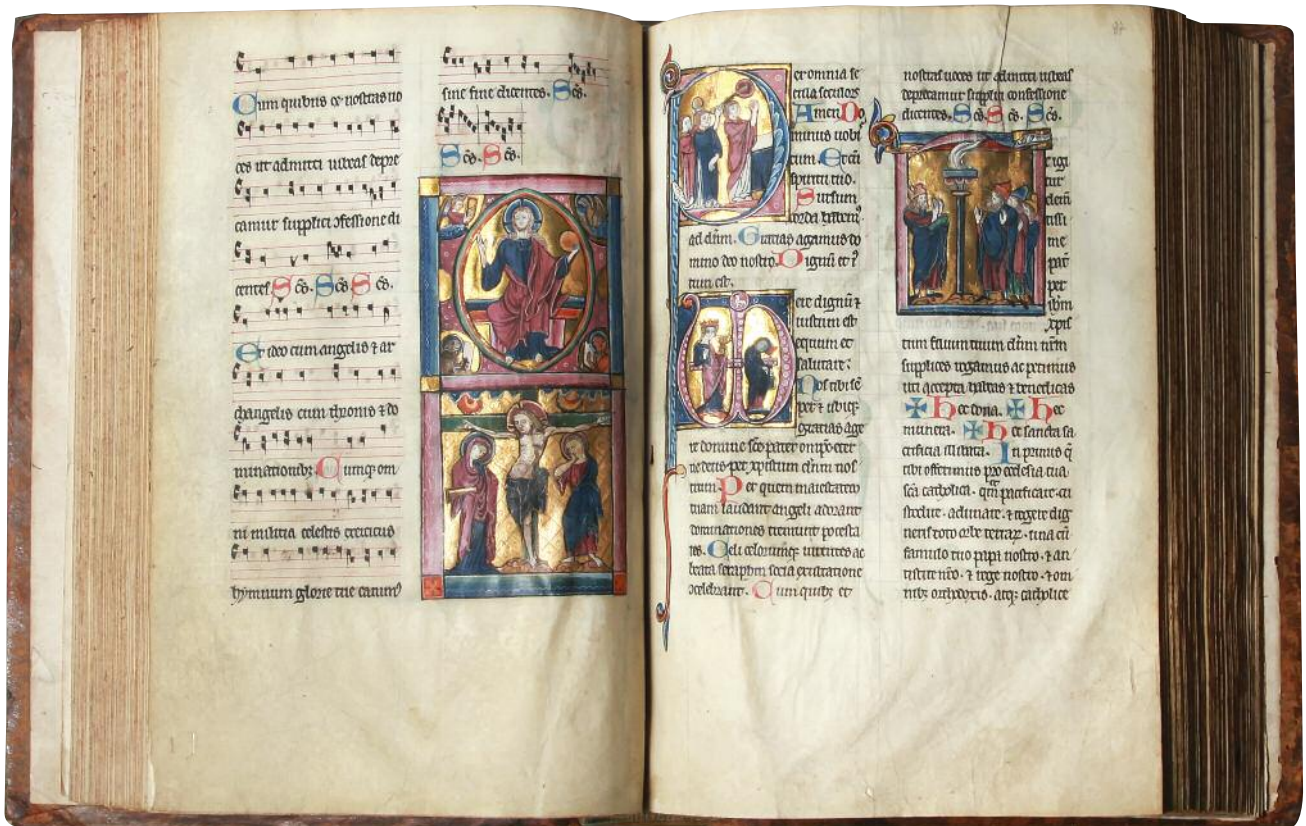 Cum quibus et nostras uo
ces ut admitti iubeas depre
camur supplici ofessione di
centes. Scs. Scs Scs.
Et ideo cum angelis et ar
changelis cum thronis et do
minationibz Cumqz om
ni militia celestis exercitus
hymnum glorie tue canim9
sine fine dicentes. Scs.
Scs. Scs.
87
er omnia se
cula seculor
Amen Do
minus uobi
cum. Et cu
spiritu tuo.
Sursum
corda habem9
ad dnm. Gratias agamus do
mino deo nostro. Dignu et i
stum est.
ere dignu et
iustum est
equum et
salutare.
Nos tibi se
per et ubiqz
gratias age
re domine sce pater omps eter
ne deus per xpistum dnm nos
trum. Per quem maiestatem
tuam laudant angeli adorant
dominationes tremunt potesta
tes. Celi celorumqz uirtutes ac
beata seraphin socia exultatione
celebrant. Cum quibz et
nostras uoces ut admitti iubeas
deprecamur supplici confessione
dicentes. Scs Scs. Scs.
igi
tur
clem
tissi
me
pat
per
ihm
xpis
tum filium tuum dnm nrm
supplices rogamus ac petimus
uti accepta habeas et benedicas
Hec dona. Hec
munera. Hec sancta sa
crificia illibata. In primis q
tibi offerimus pro ecclesia tua
sca catholica. qm pacificare. cu
stodire. adunare. et regere dig
neris toto orbe terrar. una cu
famulo tuo papa nostro. et an
tistite nro. et rege nostro. et om
nibz orthodoxis. atqz catholice